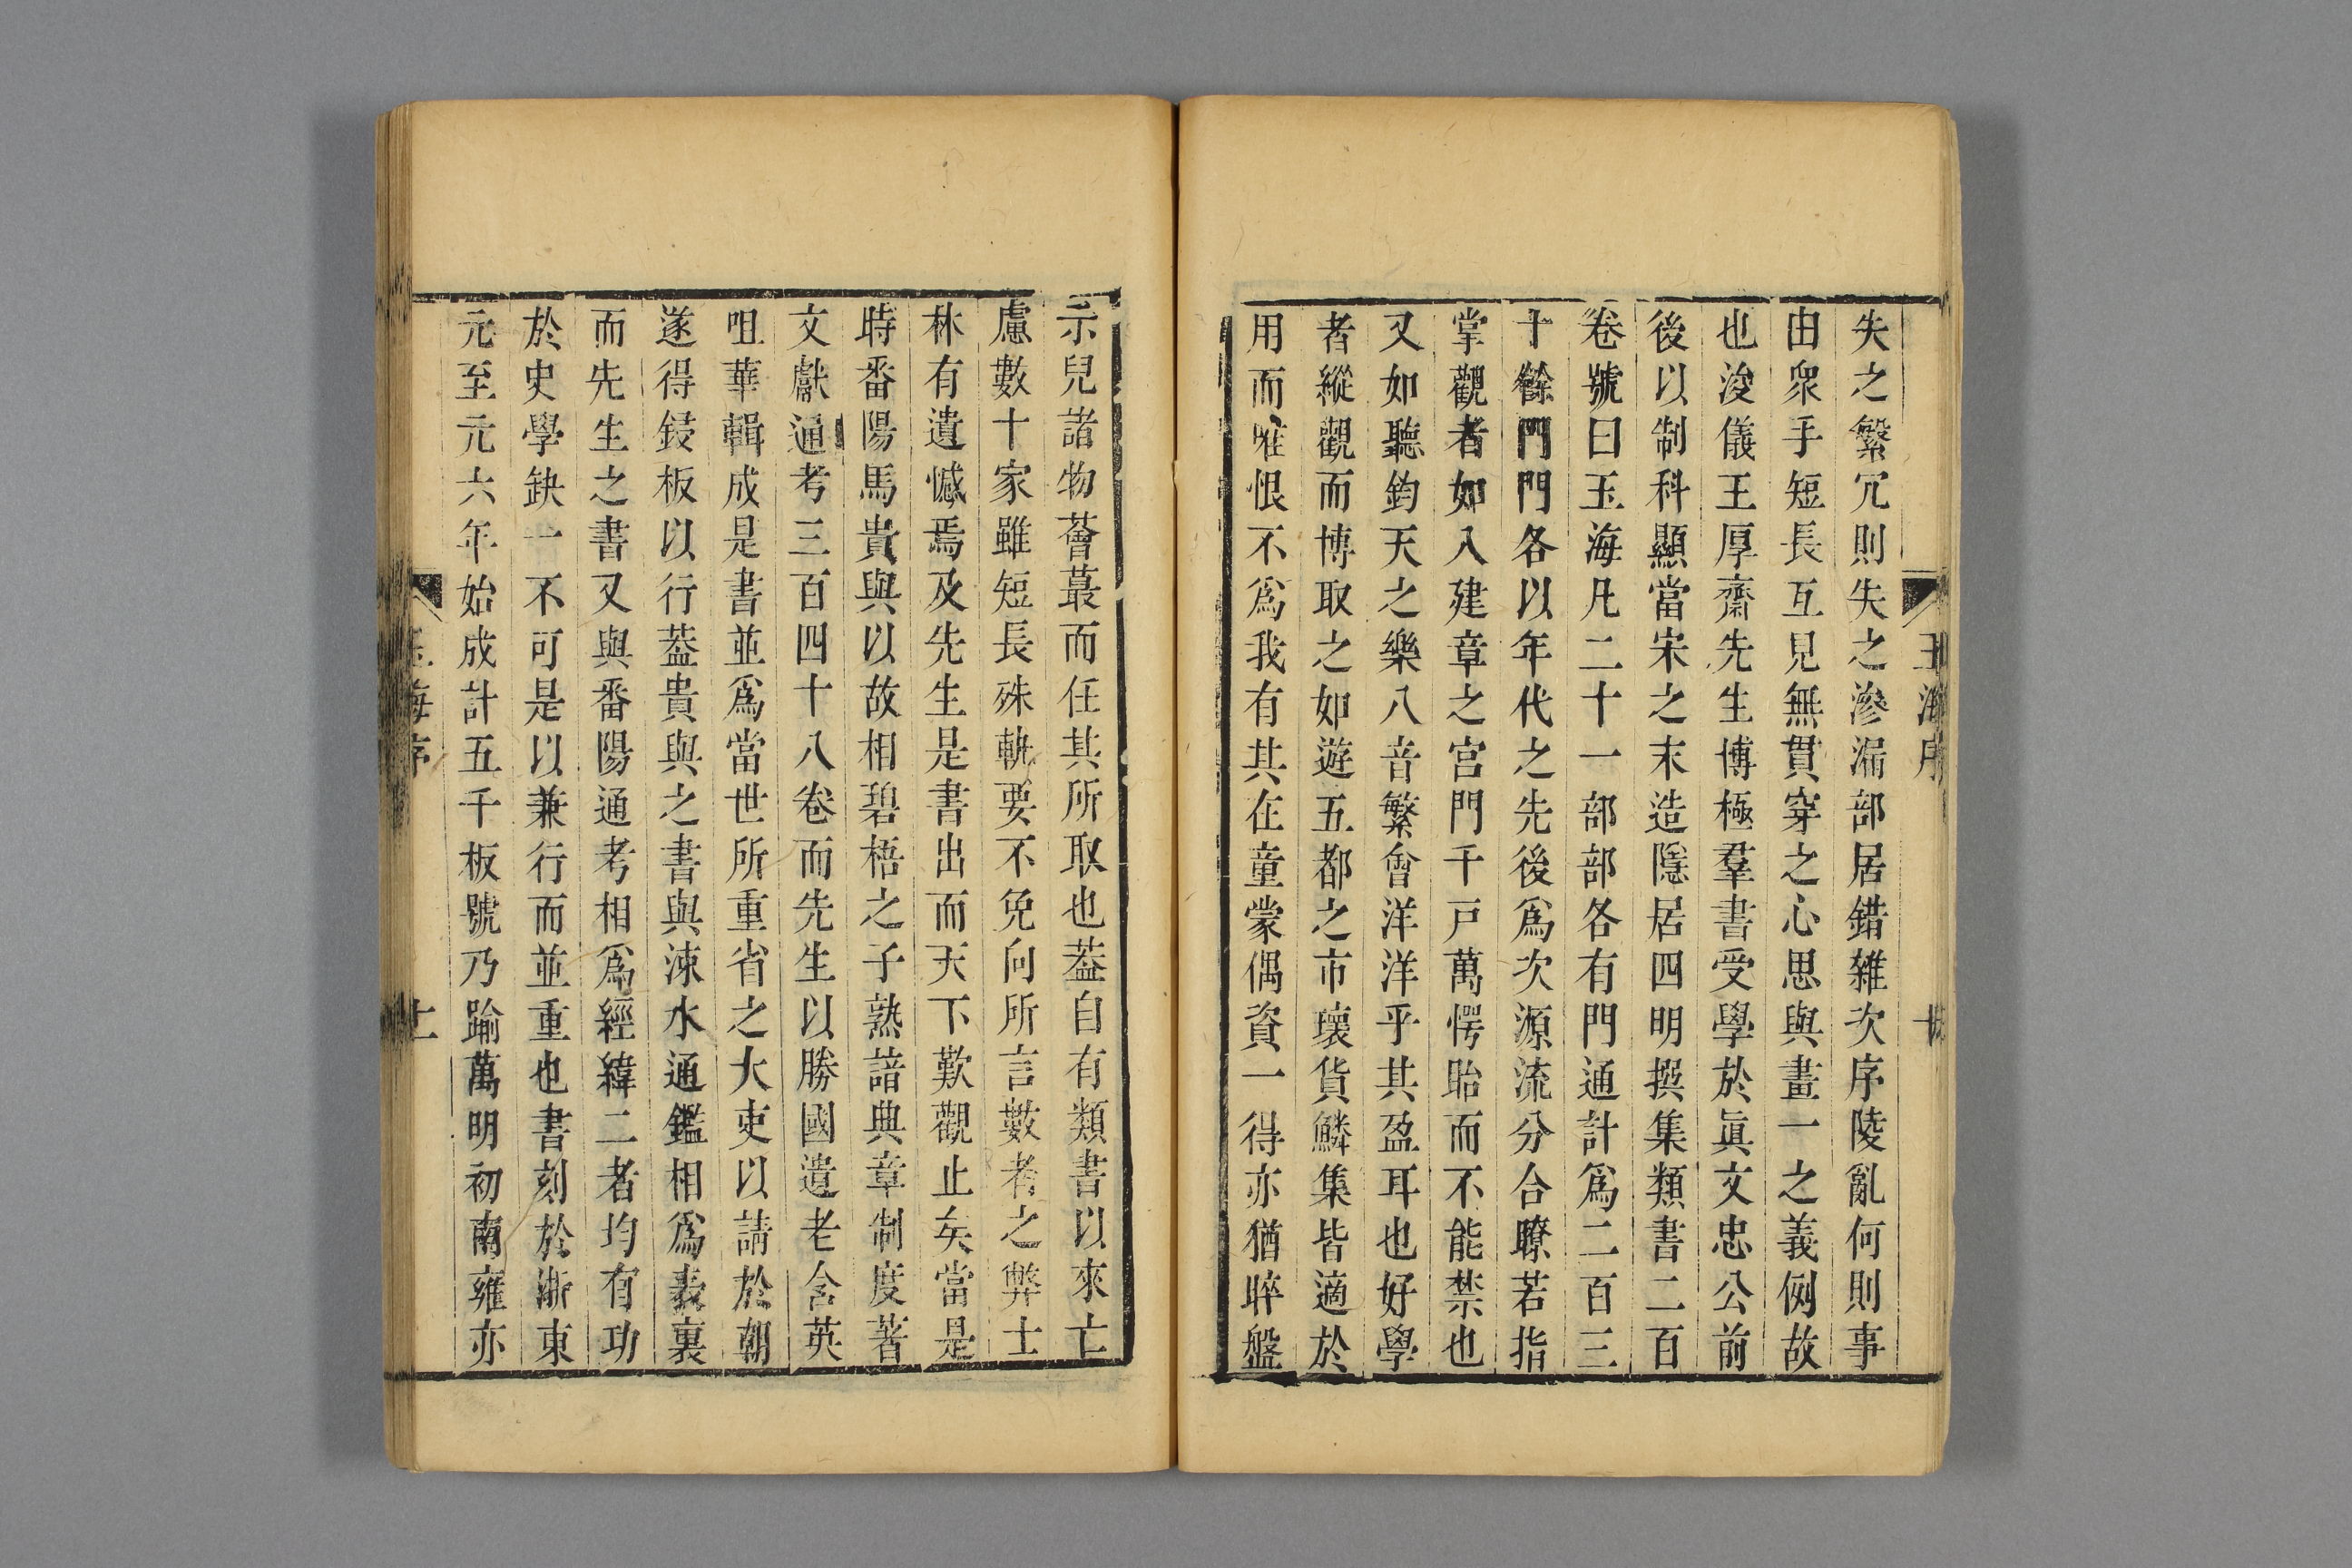 玉海序
失之繁冗則失之滲漏部居錯雜次序陵亂何則事
由衆手短長互見無貫穿之心思與畫一之義例故
也浚儀王厚齋先生博極羣書受學於眞文忠公前
後以制科顯當宋之末造隱居四明撰集類書二百
卷號曰玉海凡二十一部部各有門通計爲二百三
十餘門門各以年代之先後爲次源流分合瞭若指
掌觀者如入建章之宮門千戸萬愕眙而不能禁也
又如聽鈞天之樂八音繁會洋洋乎其盈耳也好學
者縱觀而博取之如遊五都之市瓌貨鱗集皆適於
用而唯恨不爲我有其在童蒙偶資一得亦猶晬盤
示兒諸物薈蕞而任其所取也葢自有類書以來亡
慮數十家雖短長殊軌要不免向所言數者之弊士
林有遺憾焉及先生是書出而天下歎觀止矣當是
時番陽馬貴與以故相碧梧之子熟諳典章制度著
文獻通考三百四十八卷而先生以勝國遺老含英
咀華輯成是書並爲當世所重省之大吏以請於朝
遂得鋟板以行葢貴與之書與涑水通鑑相爲表裏
而先生之書又與番陽通考相爲經緯二者均有功
於史學缺一不可是以兼行而並重也書刻於浙東
元至元六年始成計五千板號乃踰萬明初南雍亦
玉海序